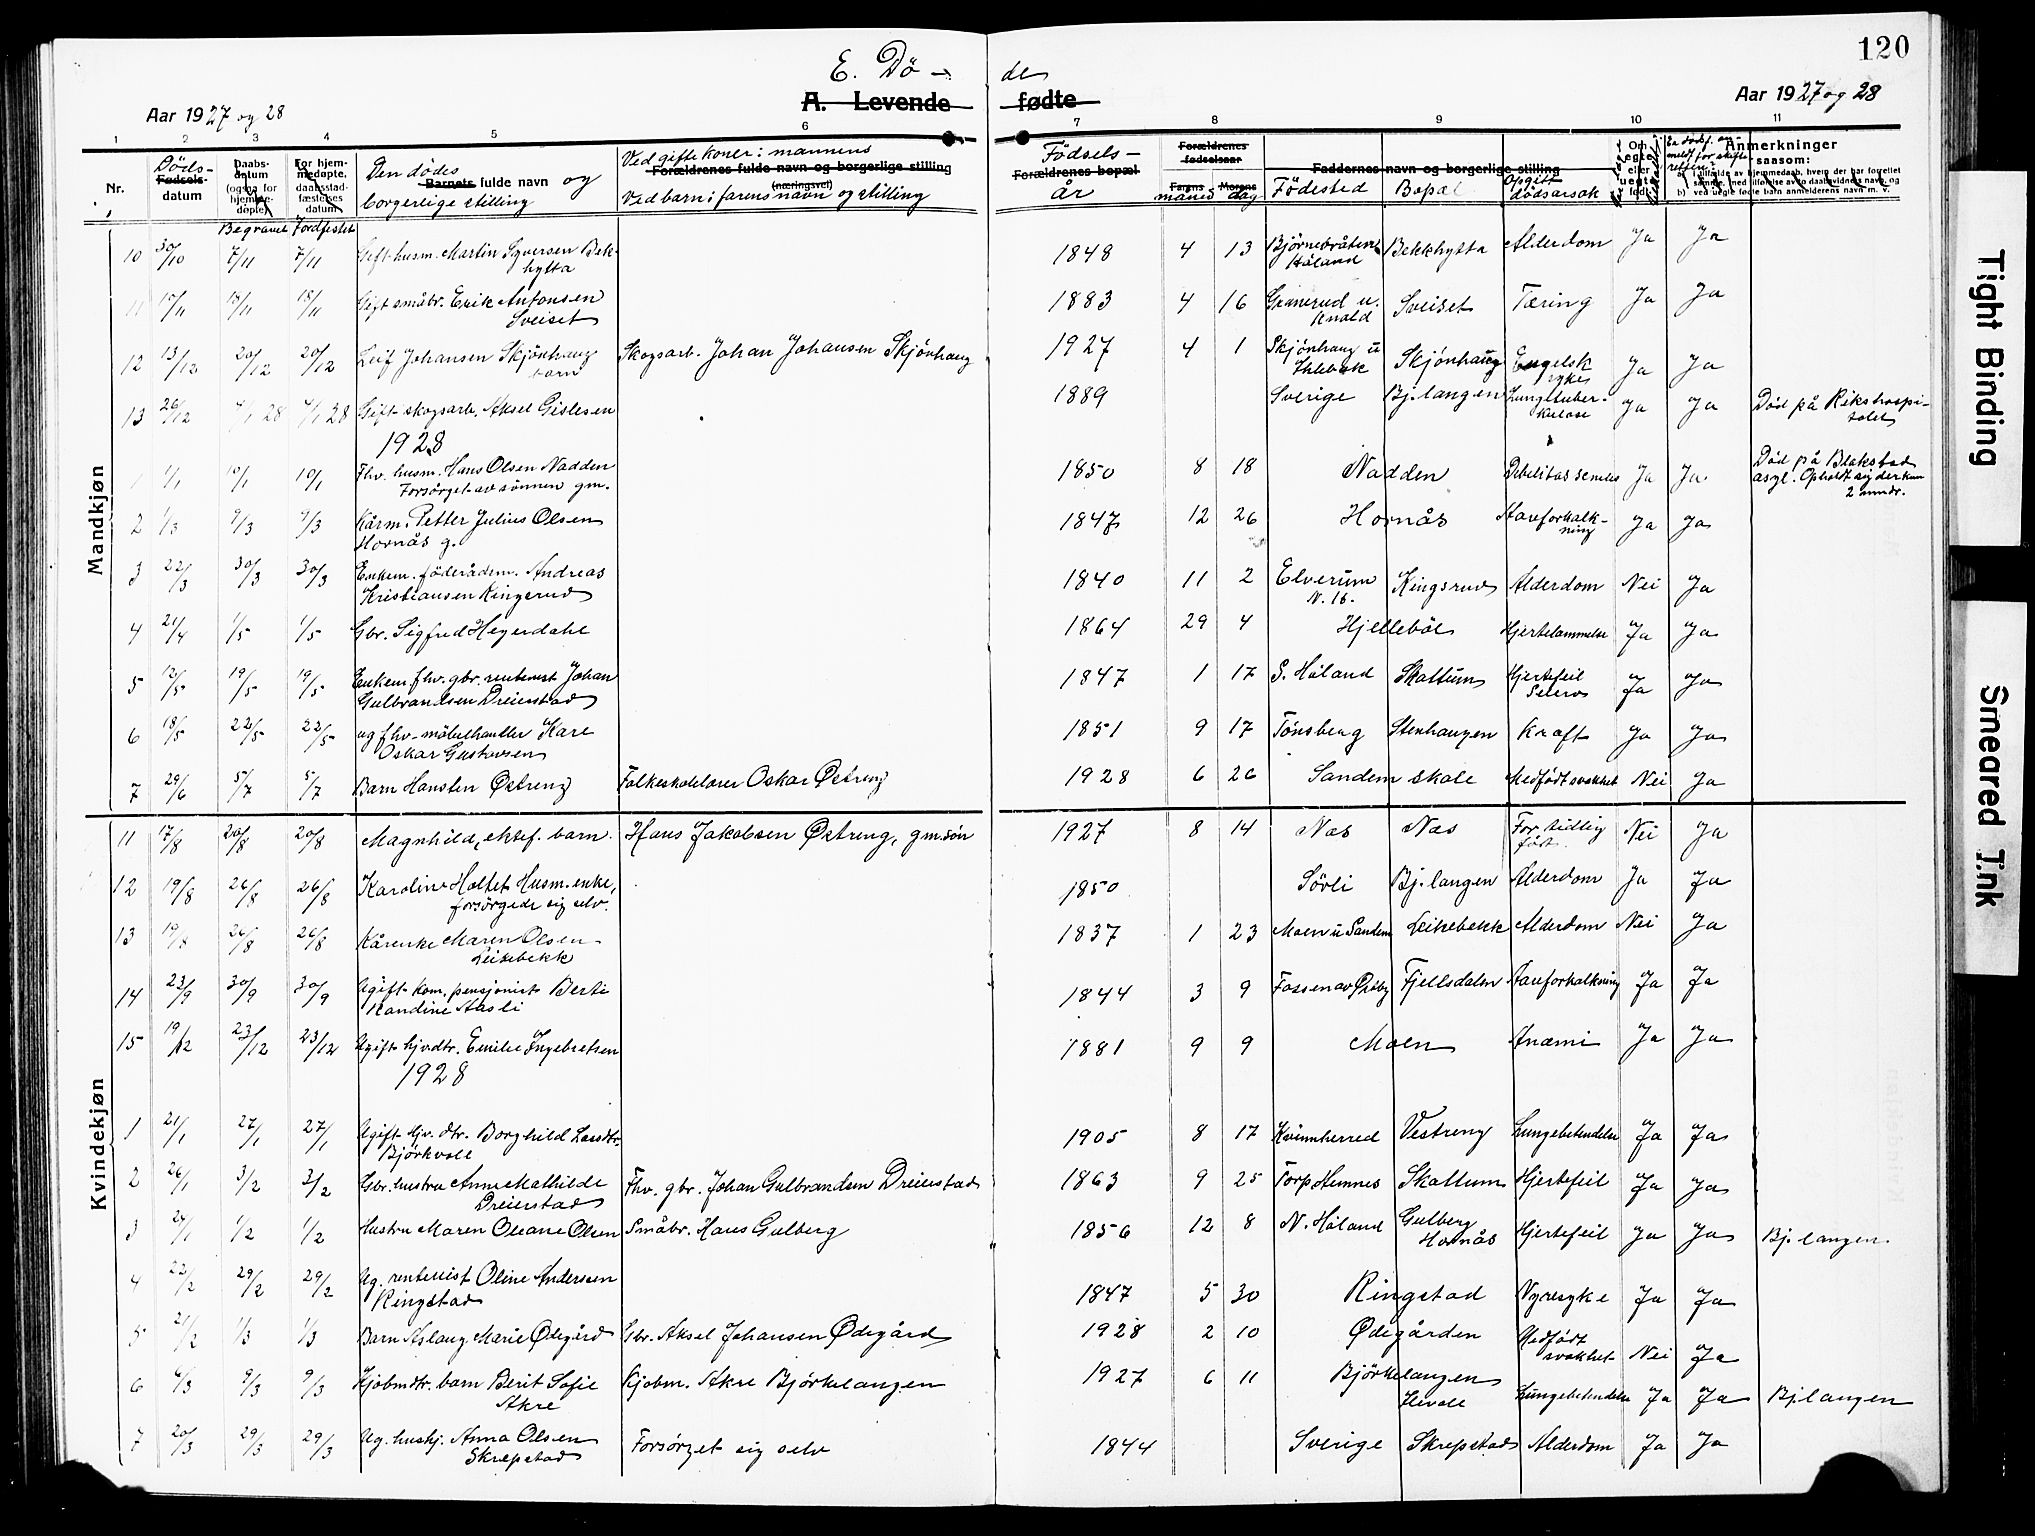 120
E. Dö - de
Aar 1927 og 28
A. Levende fødte
Aar 1927 og 28
1 2 3 4 5 6 7 8 9 10 11
Nr. Döds- datum Begravet Jordfestet Den dödes fulde navn og borgerlige stilling
Ved gifte koner: mannens
Ved barn: farens navn og stilling
Födsels- år måned dag Födested Bopæl Opgitt dödsårsak
Anmerkninger saasom:
Mandkjøn
10 30/10 7/11 7/11 Gift husm. Martin Syversen Bek- 1848 4 13 Bjørnebråten Bekkhytta Alderdom Ja Ja
hytta Höland
11 15/11 18/11 18/11 Gift småbr. Erik Antonsen 1883 4 16 Granerud u. Sveiset Tæring Ja Ja
Sveiset Knold
12 13/12 20/12 20/12 Leif Johansen Skjönhaug Skogsarb. Johan Johansen Skjönhaug 1927 4 1 Skjönhaug u Skjönhaug Engelsk Ja Ja
barn Ihlebæk syke
13 26/12 4/1 28 4/1 28 Gift skogsarb. Aksel Gislesen 1889 Sverige Bj.langen Lungetuber- Ja Ja Död på Rikshospi-
kulose talet
1928
1 1/1 10/1 10/1 Fhv. husm. Hans Olsen Nadden 1850 8 18 Nadden Debilitas senilis Ja Ja. Död på Blakstad
Forsörget av sönnen gm. asyl. Opholdt sig der kun
2 mndr.
2 1/3 9/3 9/3 Kårm. Petter Julius Olsen 1847 12 26 Hornås Aareforkalk- Ja Ja
Hornås g. ning
3 22/3 30/3 30/3 Enkem. föderådsm. Andreas 1840 11 2 Elverum Kingsrud Alderdom Nei Ja
Kristiansen Kingsrud N. 16.
4 21/4 1/5 1/5 Gbr. Sigfred Heyerdahl 1864 29 4 Hjellebøl Hjertelammelse Ja Ja
5 12/5 19/5 19/5 Enkem. fhv. gbr. rentenist Johan 1847 1 17 S. Höland Skattum Hjertefeil Ja Ja
Gulbrandsen Dreierstad
6 18/5 22/5 22/5 ug fhv. möbelhandler Kare 1851 9 17 Tönsberg Stenhaugen Kræft Ja Ja
Oskar Gustavsen
7 29/6 5/7 5/7 Barn Hansten Østreng Folkeskolelærer Oskar Østreng 1928 6 26 Sandem skole Medfödt svakhet Nei Ja
Kvindekjøn
11 17/8 20/8 20/8 Magnhild, ektef. barn. Hans Jakobsen Østreng, gm.sön 1927 8 14 Næs Næs For tidlig Nei Ja
födt.
12 19/8 26/8 26/8 Karoline Holtet Husm.enke, 1850 Sörli Bj.langen Alderdom Ja Ja
forsörgede sig selv.
13 19/8 26/8 26/8 Kårenke Maren Olsen 1837 1 23 Moen u Sandem Leikebekk Alderdom Nei Ja
Leikebekk
14 23/9 30/9 30/9 Ugift kom. pensjonist Berte 1844 3 9 Fossen av Ökeby Fjellsdalen Aareforkalkning Ja Ja
Randine Aasli
15 19/12 23/12 23/12 Ugift hjvdtr. Emilie Ingebretsen 1881 9 9 Moen Anæmi Ja Ja
1928
1 21/1 27/1 27/1 Ugift hjv. dtr. Borghild Larsdtr. 1905 8 17 Kvinnherred Vestreng Lungebetendelse Ja Ja
Björkvoll
2 26/1 3/2 3/2 Gbr. hustru Anne Mathilde Fhv. gbr. Johan Gulbrandsen Dreierstad 1863 9 25 Torp Hemnes Skattum Hjertefeil Ja Ja
Dreierstad
3 24/1 1/2 1/2 Hustru Maren Oleane Olsen Småbr. Hans Gulberg 1856 12 8 N. Höland Gulberg Hjertefeil Ja Ja Bj.langen.
Hornås
4 22/2 29/2 29/2 Ug. rentenist Oline Andersen 1847 5 30 Ringstad Nyresyke Ja Ja
Ringstad
5 21/2 1/3 1/3 Barn Aslaug Marie Ödegård Gbr. Aksel Johansen Ödegård 1928 2 10 Ödegården Medfödt Nei Ja
svakhet
6 4/3 9/3 9/3 Kjöbmdtr. barn Berit Sofie Kjöbm. Akre Björkelangen 1927 6 11 Björkelangen Lungebetendelse Ja Ja Bj.langen
Akre
7 20/3 29/3 29/3 Ug. hushj. Anna Olsen Forsörget sig selv 1844 Sverige Skrepstad Alderdom Ja Ja
Skrepstad
Tight Binding
Smeared Ink